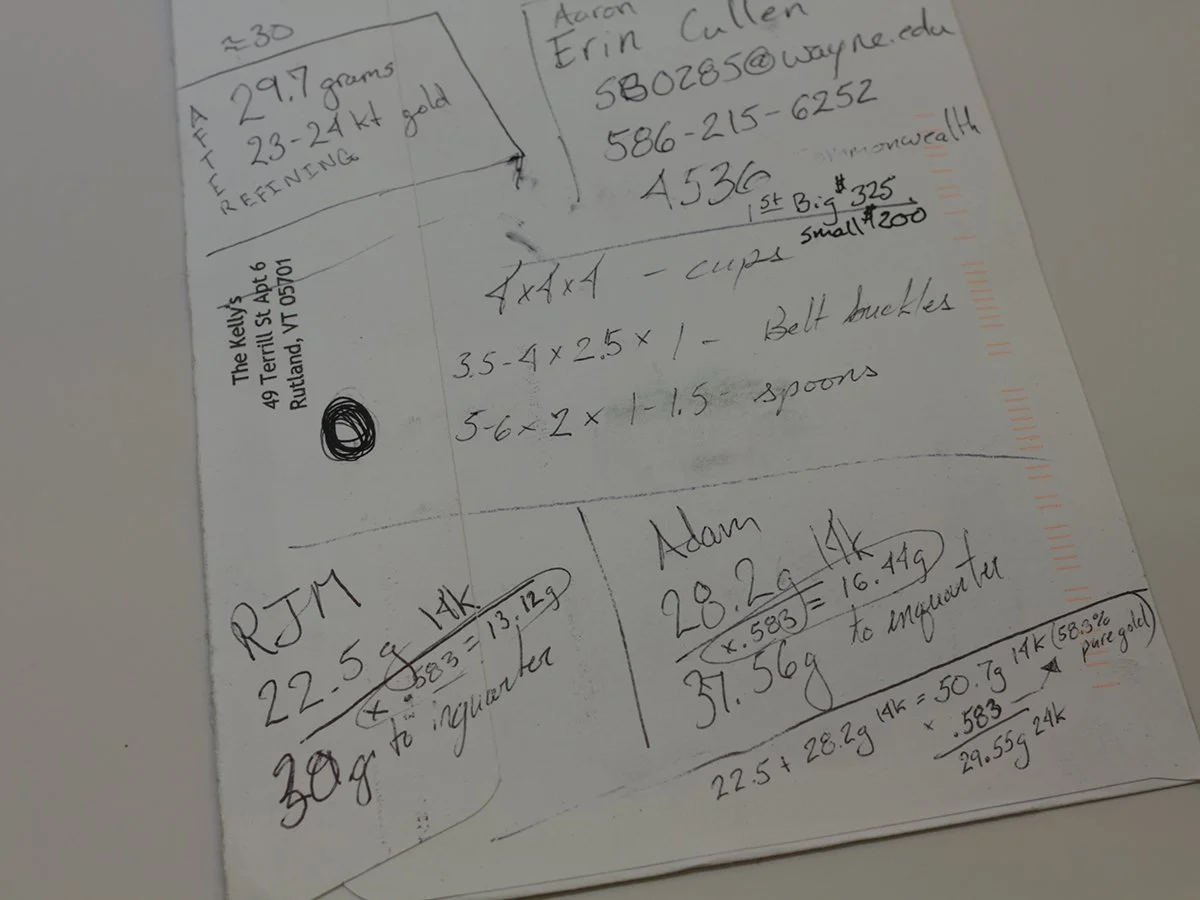 ≈30
29.7 grams
23-24 kt gold
AFTER
REFINING
Aaron
Erin Cullen
SB0285@wayne.edu
586-215-6252
4536 commonwealth
1st Big $325.
small $200
4x4x4 - cups
3.5-4 x 2.5 x 1 - Belt buckles
5-6 x 2 x 1-1.5 - spoons
The Kelly's
49 Terrill St Apt 6
Rutland, VT 05701
RJM
22.5g 14k
x .583 = 13.12g
30g to inquarter
Adam
28.2g 14k
x.583 = 16.44g
37.56g to inquarter
22.5 + 28.2g 14k = 50.7g 14k (58.3% pure gold)
x .583
29.55g 24k